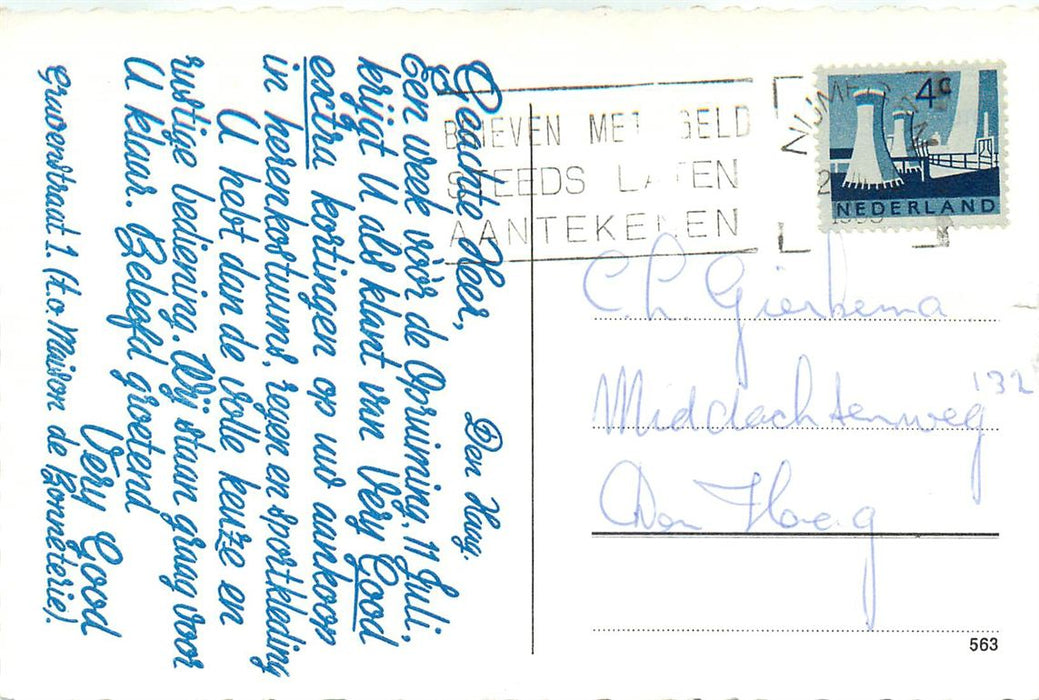 Den Haag.
Geachte Heer,
Een week vòòr de Opruiming, 11 Juli,
krijgt U als klant van Very Good
extra kortingen op uw aankoop
in herenkostuums, regen en sportkleding
U hebt dan de volle keuze en
rustige bediening. Wij staan graag voor
U klaar. Beleefd groetend
Very Good
Gravenstraat 1. (t.o. Maison de Bonneterie).
BRIEVEN MET GELD
STEEDS LATEN
AANTEKENEN
4c
NEDERLAND
C.L. Gierkema
Middachtenweg 132
Den Haag
563